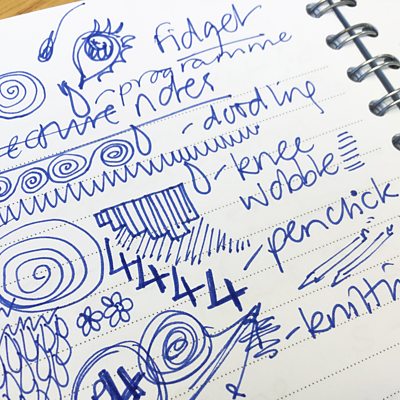 fidget
programme
ecture notes
- doodling
- knee
wobble
- pen click
4 4 4 4
- knitti
4